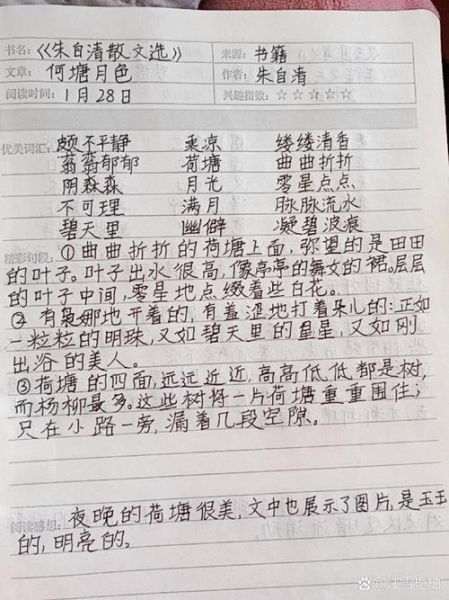 书名:《朱自清散文选》 来源: 书籍
文章: 何塘月色 作者: 朱自清
阅读时间: 1月28日 兴趣指数: ☆☆☆☆☆
优美词汇: 颇不平静 乘凉 缕缕清香
蓊蓊郁郁 荷塘 曲曲折折
阴森森 月光 零星点点
不可理 满月 脉脉流水
碧天里 幽僻 凝碧波痕
精彩句段: ①曲曲折折的荷塘上面, 弥望的是田田
的叶子。叶子出水很高, 像亭亭的舞女的裙。层层
的叶子中间, 零星地点缀着些白花。
② 有袅娜地开着的, 有羞涩地打着朵儿的; 正如
一粒粒的明珠, 又如碧天里的星星, 又如刚
出浴的美人。
③荷塘的四面, 远远近近, 高高低低都是树,
而杨柳最多。这些树将一片荷塘重重围住;
只在小路一旁, 漏着几段空隙。
阅读感想: 夜晚的荷塘很美, 文中也展示了图片, 是玉玉
的, 明亮的。